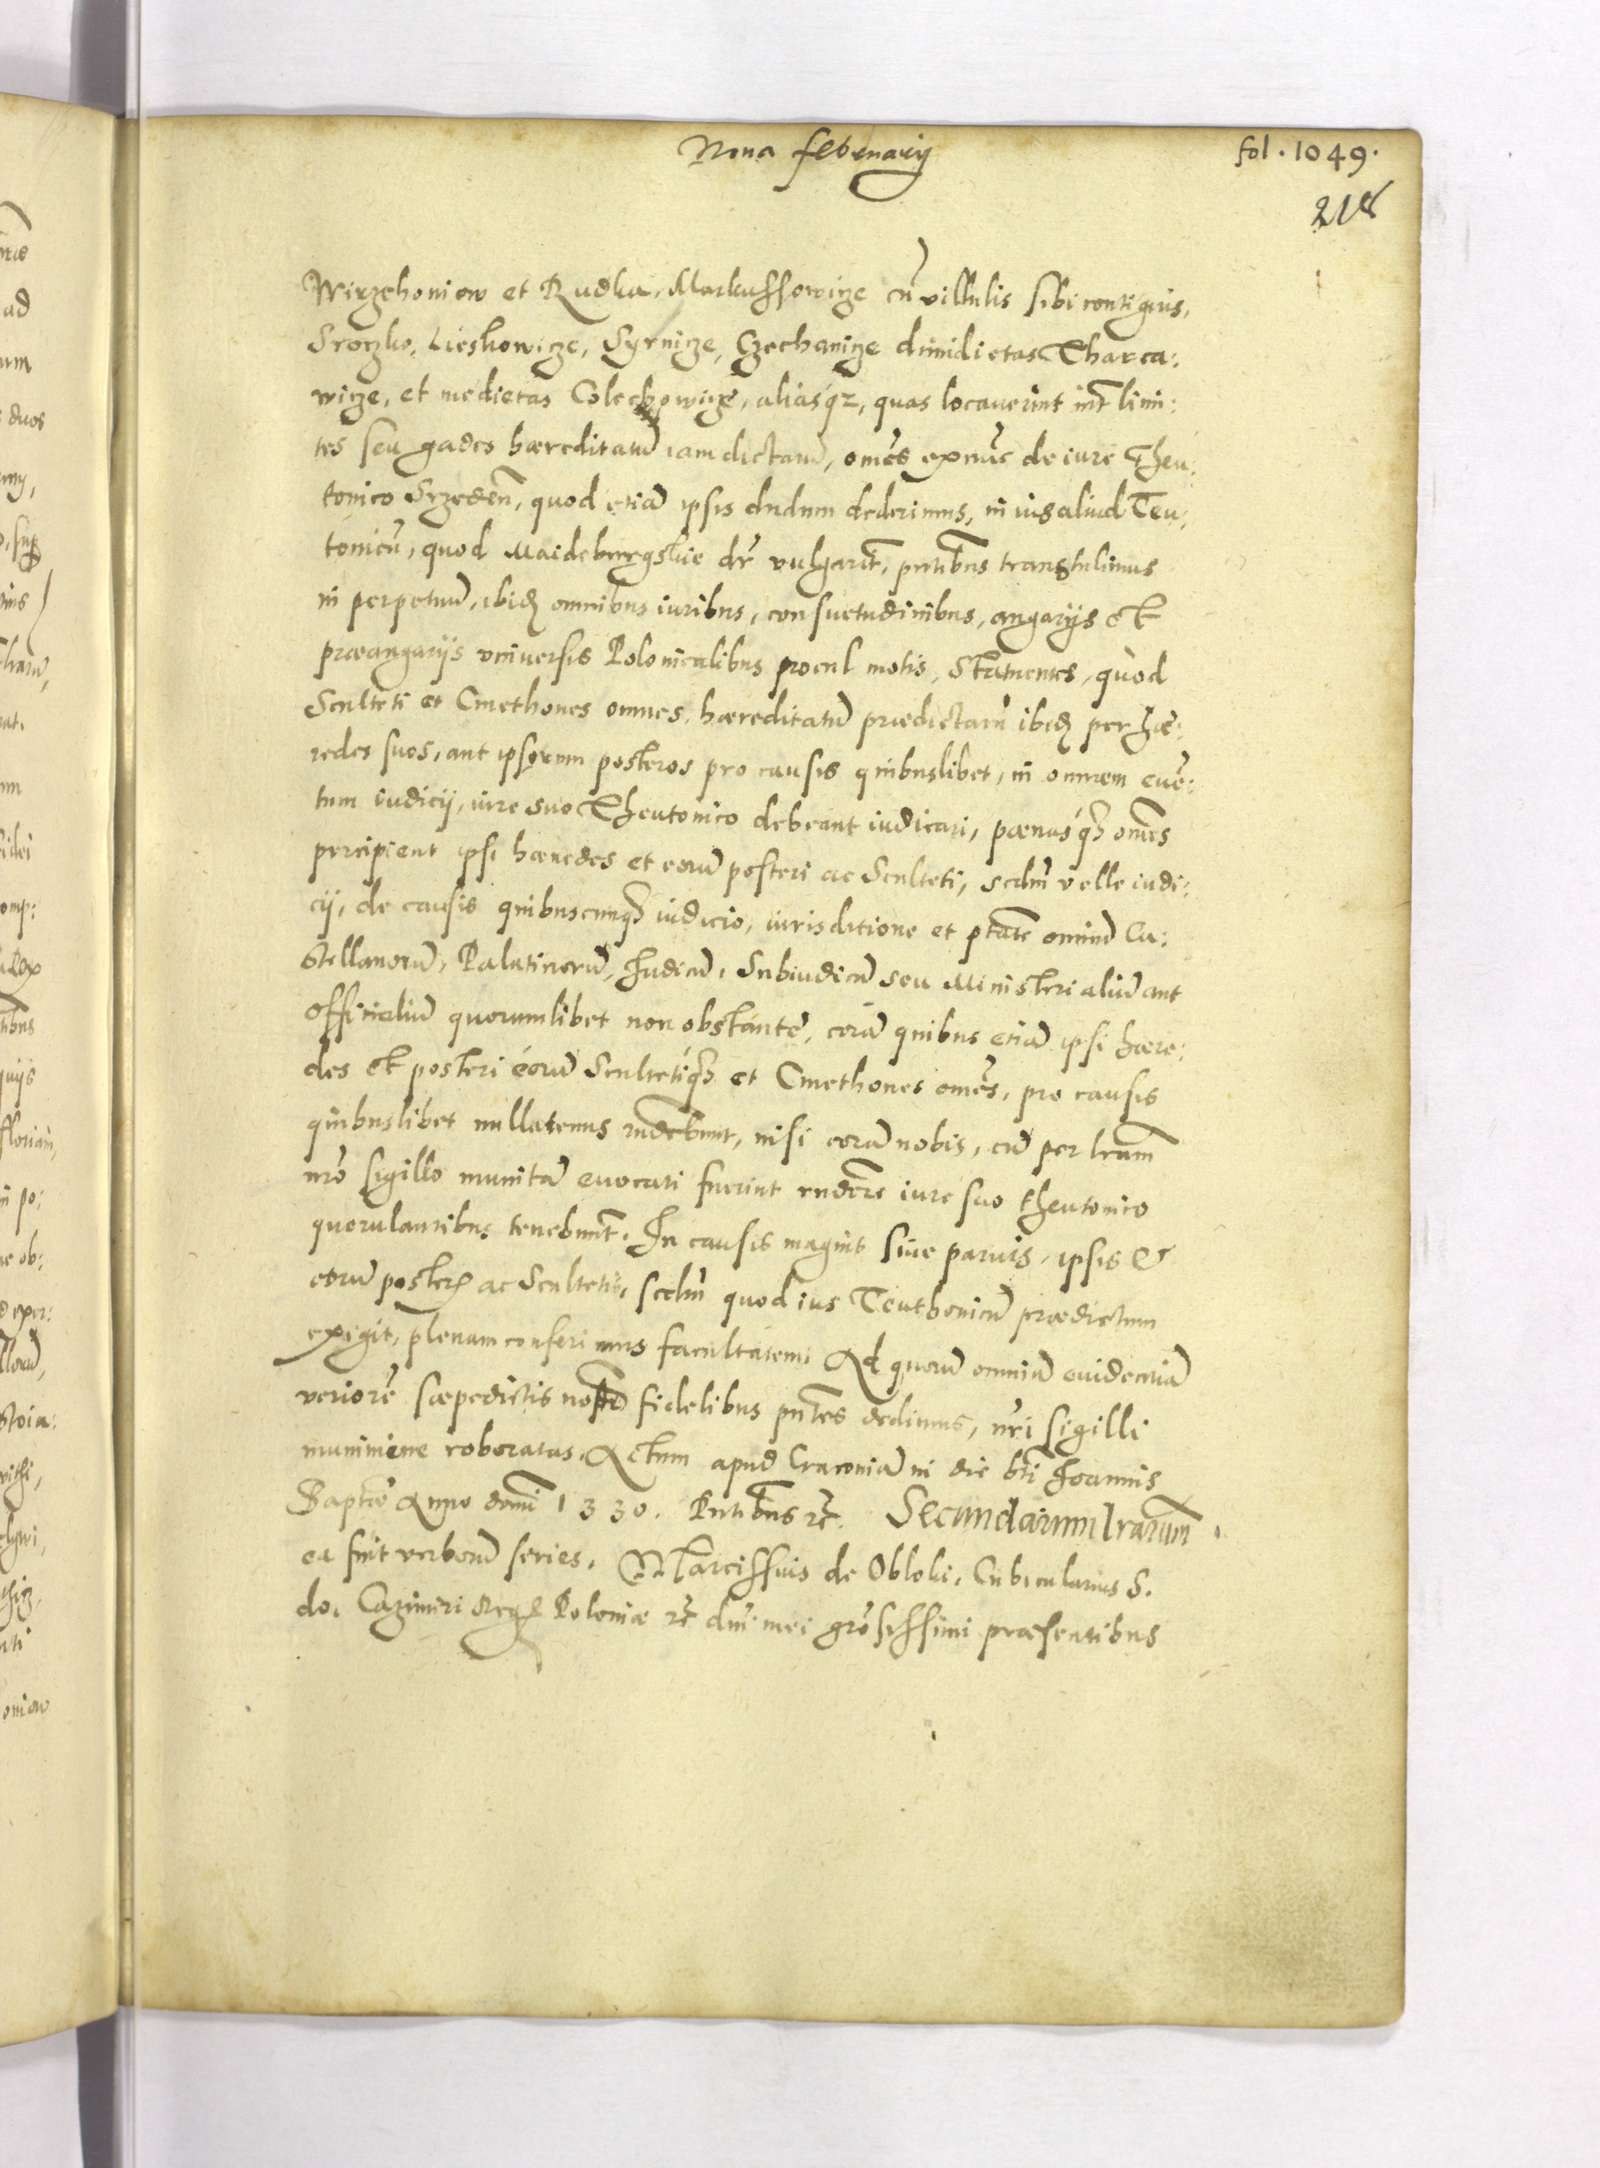 Nona februarij
fol. 1049.
218
Wirzchoniow et Rudka, Markussowicze cū villulis sibi contiguis,
Sroczko, Lieskowicze, Syrnicze, Czechanicze dimidietas Tharca:
wicze, et medietas Colechowicze, aliasq3, quas locauerint int limi:
tes seu gades hæreditatū iam dictarū, omēs exnūc de iure Theu:
tonico Srzedeñ, quod etiā ipsis dudum dederimus, in ius aliud Teu:
tonicū, quod Maideburgskie dr̄ vulgarit̄, pntibus transtulimus
in perpetuū, ibid omnibus iuribus, consuetudinibus, angarijs et
præangarijs vniuersis Polonicalibus procul motis, Statuentes, quòd
Sculteti et Cmethones omnes, hæreditatū prædictarū ibid per hæ:
redes suos, aut ipsorum posteros pro causis quibuslibet, in omnem euē:
tum iudicij, iure suo Theutonico debeant iudicari, pænasq3 omēs
percipient ipsi hæredes et eorū posteri ac Sculteti, scdm̄ velle iudi:
cij, de causis quibuscunq3 iudicio, iurisditione et ptāte omniū Ca:
stellanorū, Palatinorū, Iudicū, Subiudicū seu Ministerialiū aut
Officialiū quorumlibet non obstante, corā quibus etiā ipsi hære:
des et posteri eorū Scultetiq3 et Cmethones omēs, pro causis
quibuslibet nullatenus rndebunt, nisi corā nobis, cū per lram̄
nrō sigillo munitā euocati fuerint rndēre iure suo theutonico
querulantibus tenebunt̄. In causis magnis siue paruis, ipsis et
eorū poster ac Scultetis, scdm̄ quod ius Teuthonicū prædictum
exigit, plenam conferimus facultatem. Ad quorū omniū euidentiā
veriorē sæpedictis fidelibus pntes dedimus, nr̄i sigilli
munimine roboratas. Actum apud Cracouiā in die bti Ioannis
Baptæ Anno domi 1330. Pntibus rc. Secundarum lrarum
ea fuit verborū series. Marcissius de Obloki, Cubicularius S.
do. Cazimiri Reg Poloniæ rc dni mei grōsissimi præsentibus